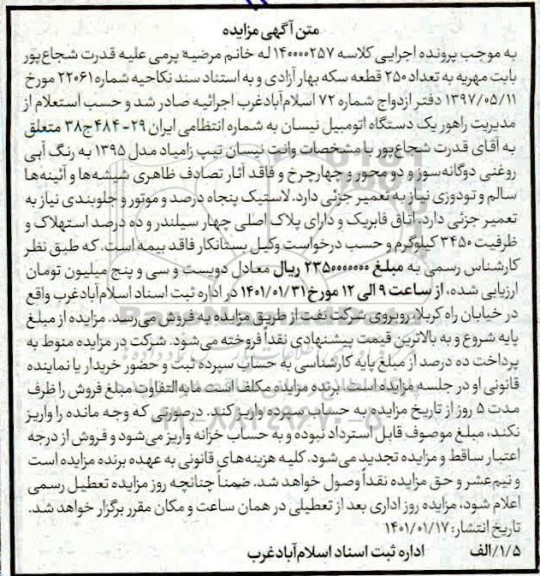 متن آگهی مزایده
به موجب پرونده اجرایی کلاسه ۱۴۰۰۰۰۲۵۷ له خانم مرضیه پرمی علیه قدرت شجاع‌پور
بابت مهریه به تعداد ۲۵۰ قطعه سکه بهار آزادی و به استناد سند نکاحیه شماره ۲۲۰۶۱ مورخ
۱۳۹۷/۰۵/۱۱ دفتر ازدواج شماره ۷۲ اسلام‌آبادغرب اجرائیه صادر شد و حسب استعلام از
مدیریت راهور یک دستگاه اتومبیل نیسان به شماره انتظامی ایران ۲۹-۴۸۴ج۳۸ متعلق
به آقای قدرت شجاع‌پور با مشخصات وانت نیسان تیپ زامیاد مدل ۱۳۹۵ به رنگ آبی
روغنی دوگانه‌سوز و دو محور و چهارچرخ و فاقد آثار تصادف ظاهری شیشه‌ها و آئینه‌ها
سالم و تودوزی نیاز به تعمیر جزئی دارد. لاستیک پنجاه درصد و موتور و جلوبندی نیاز به
تعمیر جزئی دارد. اتاق فابریک و دارای پلاک اصلی چهار سیلندر و ده درصد استهلاک و
ظرفیت ۳۴۵۰ کیلوگرم و حسب درخواست وکیل بستانکار فاقد بیمه است. که طبق نظر
کارشناس رسمی به مبلغ ۲۳۵۰۰۰۰۰۰۰ ریال معادل دویست و سی و پنج میلیون تومان
ارزیابی شده، از ساعت ۹ الی ۱۲ مورخ ۱۴۰۱/۰۱/۳۱ در اداره ثبت اسناد اسلام‌آبادغرب واقع
در خیابان راه کربلا، روبروی شرکت نفت از طریق مزایده به فروش می‌رسد. مزایده از مبلغ
پایه شروع و به بالاترین قیمت پیشنهادی نقداً فروخته می‌شود. شرکت در مزایده منوط به
پرداخت ده درصد از مبلغ پایه کارشناسی به حساب سپرده ثبت و حضور خریدار یا نماینده
قانونی او در جلسه مزایده است. برنده مزایده مکلف است مابه‌التفاوت مبلغ فروش را ظرف
مدت ۵ روز از تاریخ مزایده به حساب سپرده واریز کند. درصورتی که وجه مانده را واریز
نکند، مبلغ موصوف قابل استرداد نبوده و به حساب خزانه واریز می‌شود و فروش از درجه
اعتبار ساقط و مزایده تجدید می‌شود. کلیه هزینه‌های قانونی به عهده برنده مزایده است
و نیم‌عشر و حق مزایده نقداً وصول خواهد شد. ضمناً چنانچه روز مزایده تعطیل رسمی
اعلام شود، مزایده روز اداری بعد از تعطیلی در همان ساعت و مکان مقرر برگزار خواهد شد.
تاریخ انتشار: ۱۴۰۱/۰۱/۱۷
۱/۵/الف اداره ثبت اسناد اسلام‌آبادغرب